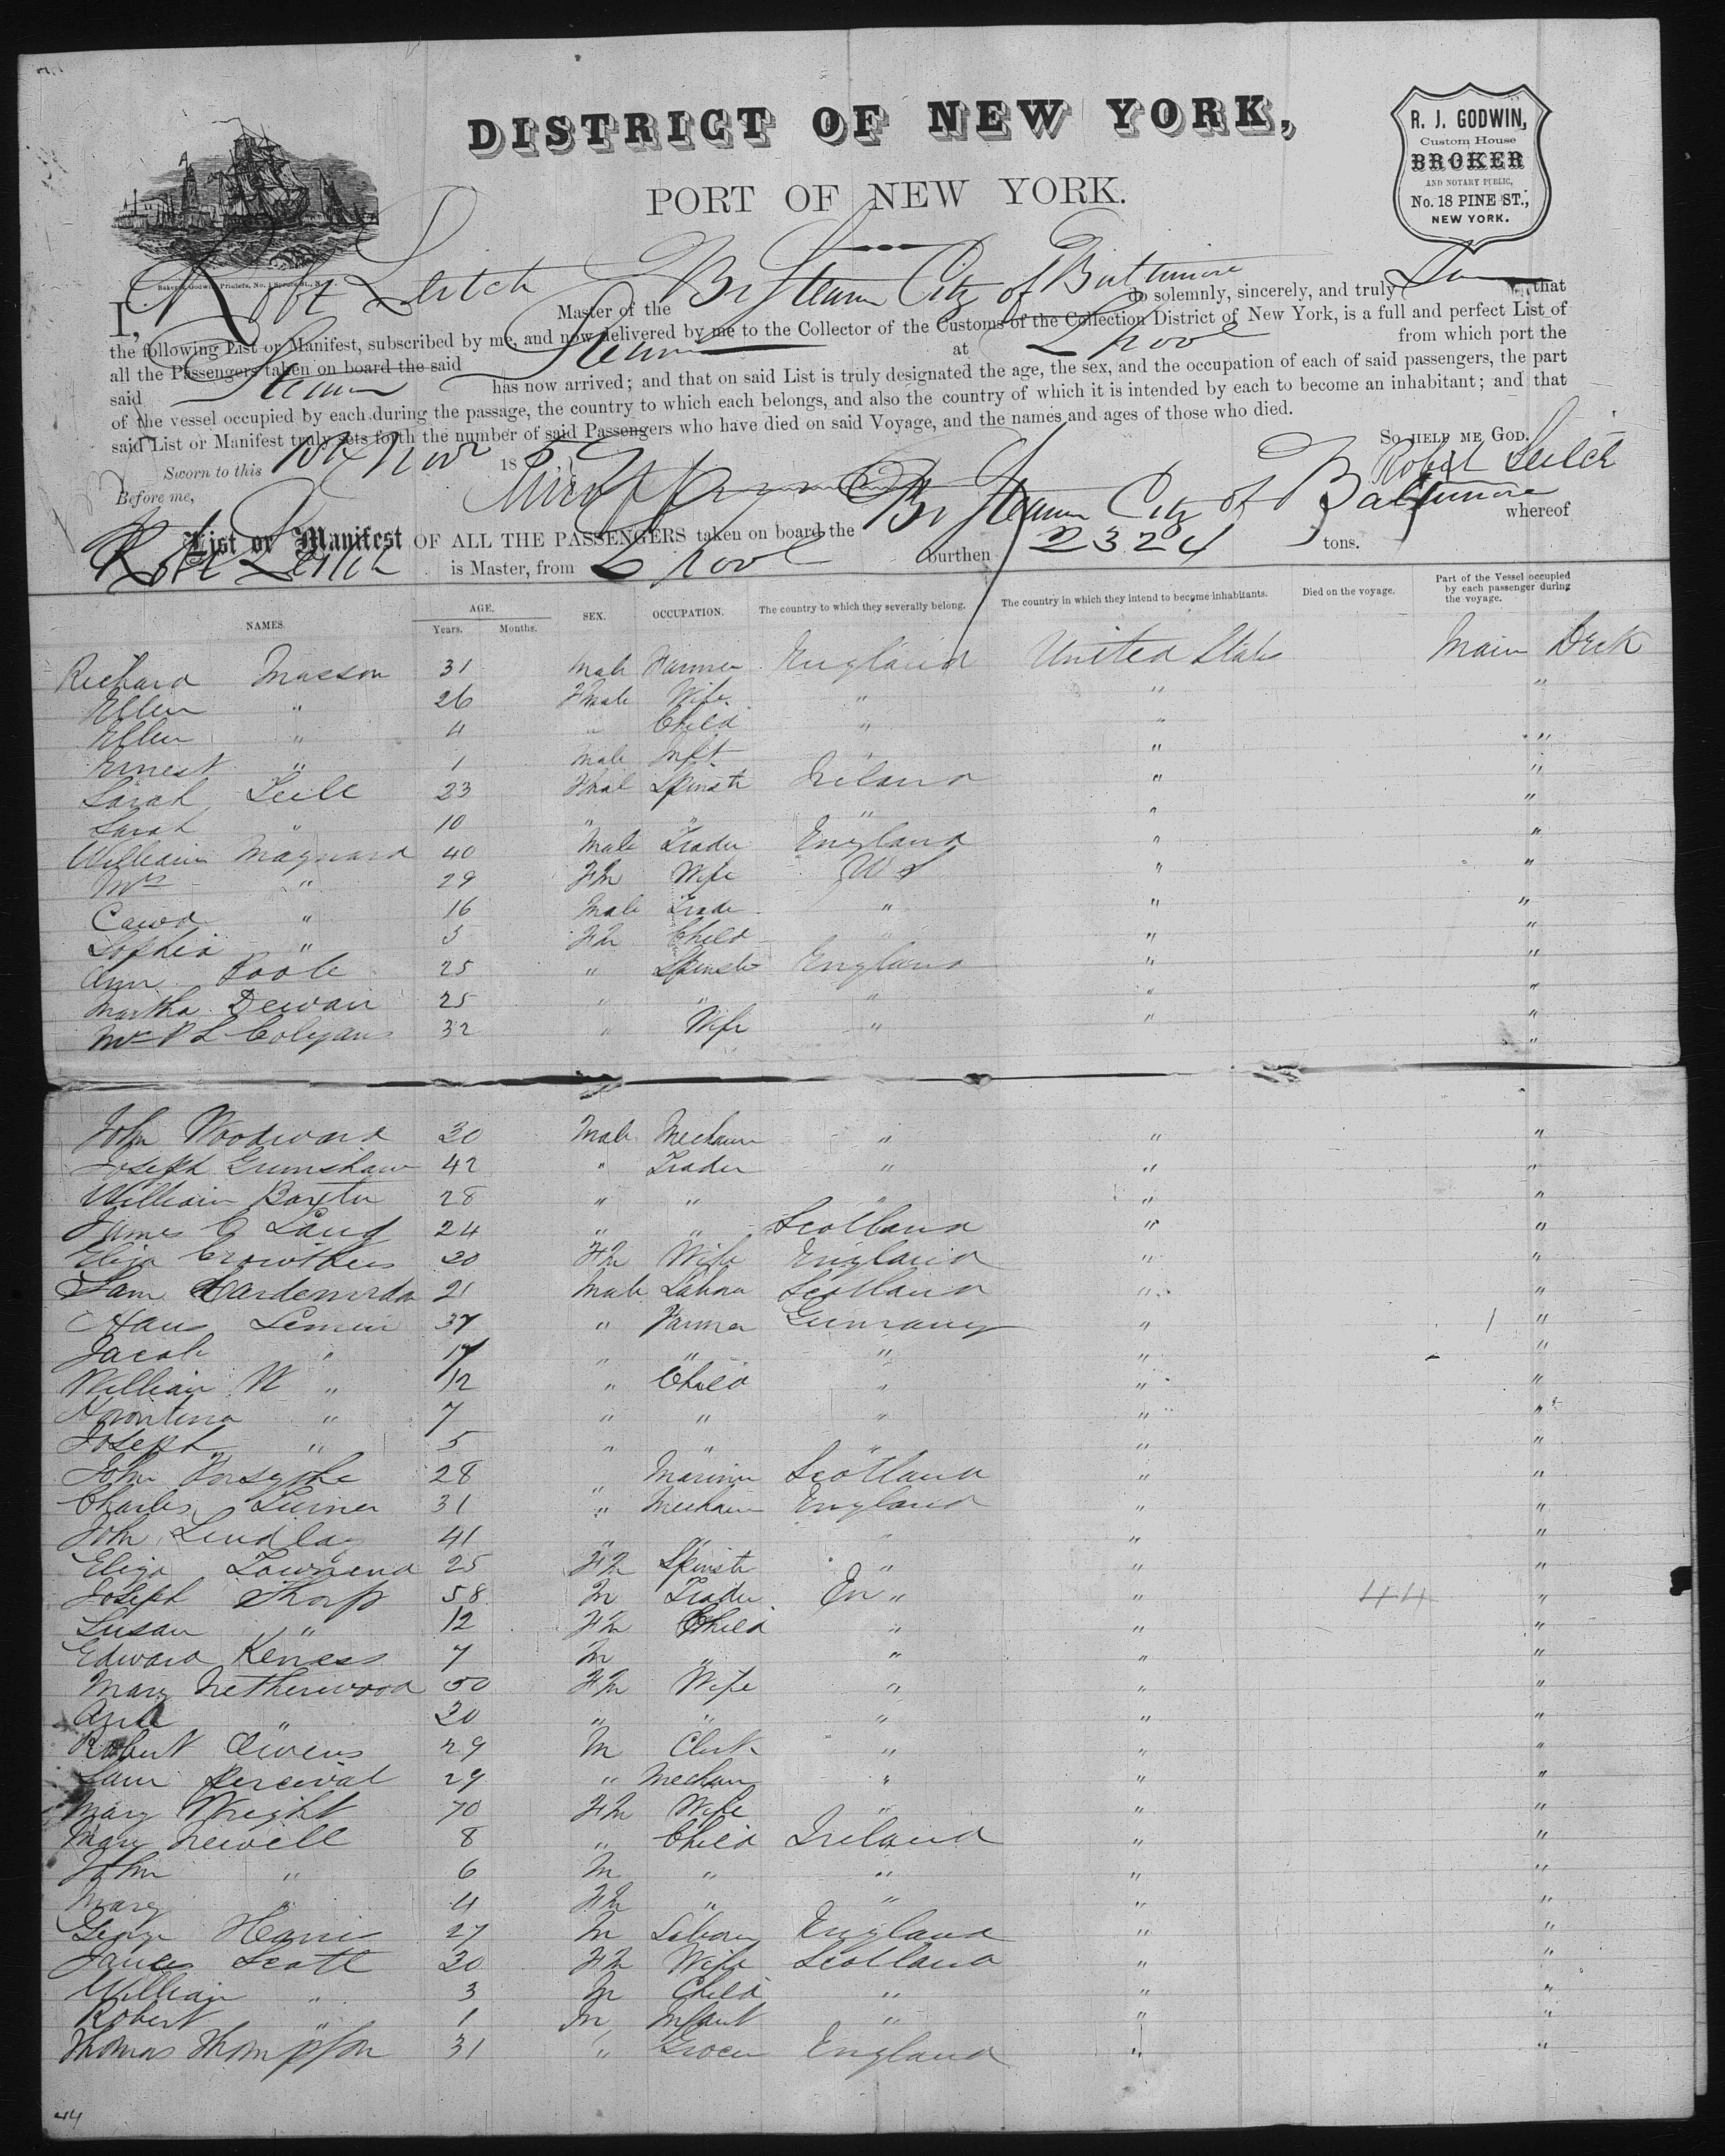 DISTRICT OF NEW YORK,
PORT OF NEW YORK.
R. J. GODWIN,
Custom House
BROKER
AND NOTARY PUBLIC,
No. 18 PINE ST.,
NEW YORK.
I, Robt Leitch Master of the Br Steam City of Baltimore do solemnly, sincerely, and truly that
the following List or Manifest, subscribed by me, and now delivered by me to the Collector of the Customs of the Collection District of New York, is a full and perfect List of
all the Passengers taken on board the said Steam at L'pool from which port the
said Steam has now arrived; and that on said List is truly designated the age, the sex, and the occupation of each of said passengers, the part
of the vessel occupied by each during the passage, the country to which each belongs, and also the country of which it is intended by each to become an inhabitant; and that
said List or Manifest truly sets forth the number of said Passengers who have died on said Voyage, and the names and ages of those who died.
So HELP ME GOD.
Sworn to this Nov 18 Robt Leitch
Before me,
List or Manifest OF ALL THE PASSENGERS taken on board the Br Steam City of Baltimore whereof
Robt Leitch is Master, from L'pool burthen 2324 tons.
NAMES. AGE. Years. Months. SEX. OCCUPATION. The country to which they severally belong. The country in which they intend to become inhabitants. Died on the voyage. Part of the Vessel occupied by each passenger during the voyage.
Richard Masson 31 Male Farmer England United Stats Main Deck
Ellen " 26 Fmale Wife " " "
Ellen " 4 " Child " " "
Ernest " 1 Male Inft " " "
Sarah 23 Fmal Spinstr Ireland " "
Sarah " 10 " " " " "
William Maynard 40 Male Trader England " "
Mrs " 29 Fm Wife " "
" 16 Male Trade " " "
Sophia " 5 Fm Child " " "
Ann Poole 25 " Spinster England " "
Martha Dewan 25 " " " " "
32 " Wife " " "
John Woodward 30 Male Mechanc " " "
Joseph Grimshaw 42 " Trader " " "
William Baxter 28 " " " " "
James C Laug 24 " " Scotland " "
Eliza Crowther 20 Fm Wife England " "
Sam 21 Male Labour Scotland " "
Hans 37 " Farmer Germany " "
Jacob " 17 " " " " "
William W " 12 " Child " " "
" 7 " " " " "
Joseph " 5 " " " " "
John Forsythe 28 " Marine Scotland " "
Charles Turner 31 " Mechanc England " "
John Lindlay 41 " " " " "
Eliza Townend 25 Fm Spinstr " " "
Joseph Thorp 58 M Trader En " " 44 "
Susan " 12 Fm Child " " "
Edward Keness 7 M " " " "
Mary Netherwood 50 Fm Wife " " "
Ann " 20 " " " " "
Robert Owens 29 M Clerk " " "
Sam Percival 29 " Mechan " " "
Mary Wright 70 Fm Wife " " "
Mary Newell 8 " Child Ireland " "
John " 6 M " " " "
Mary " 4 Fm " " " "
George Harris 27 M Labour England " "
Scott 30 Fm Wife Scotland " "
William " 3 M Child " " "
Robert " 1 M Infant " " "
Thomas Thompson 31 " Grocer England " "
44